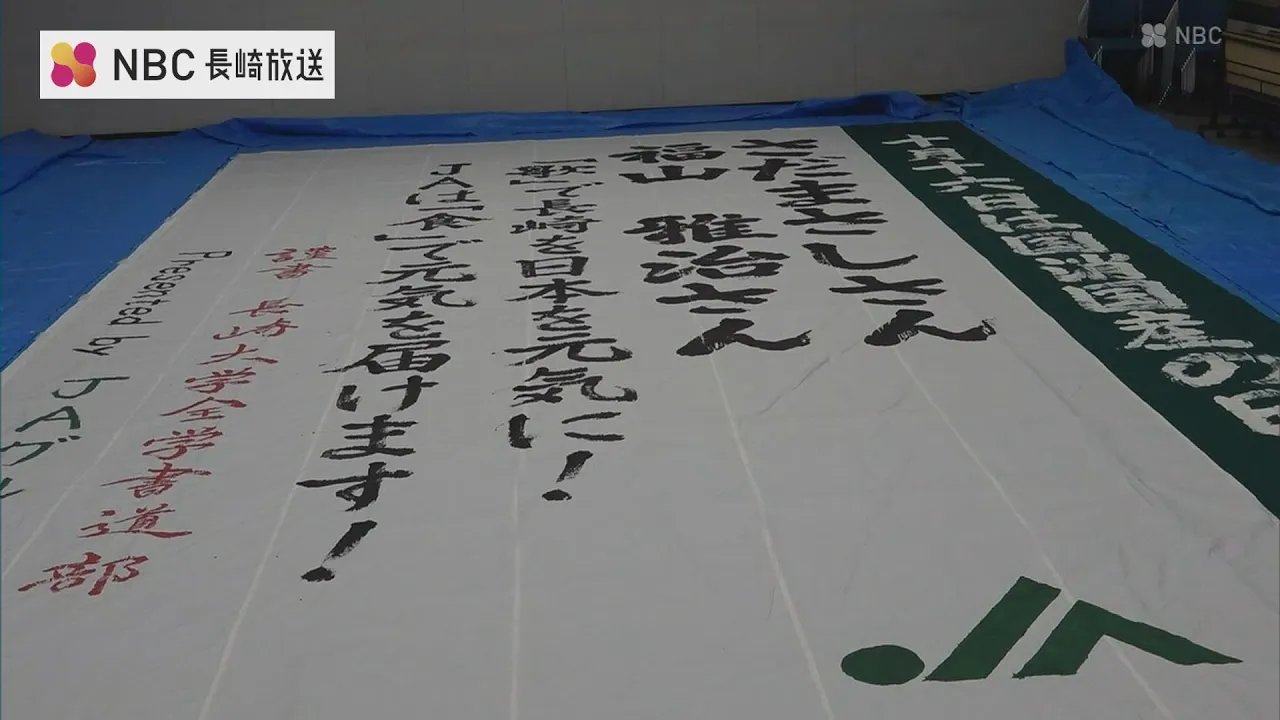 NBC 長崎放送
NBC
さだまさしさん
福山 雅治さん
「歌」で長崎を日本を元気に!
JAは「食」で元気を届けます!
謹書 長崎大学全学書道部
Presented by JAグル
JA